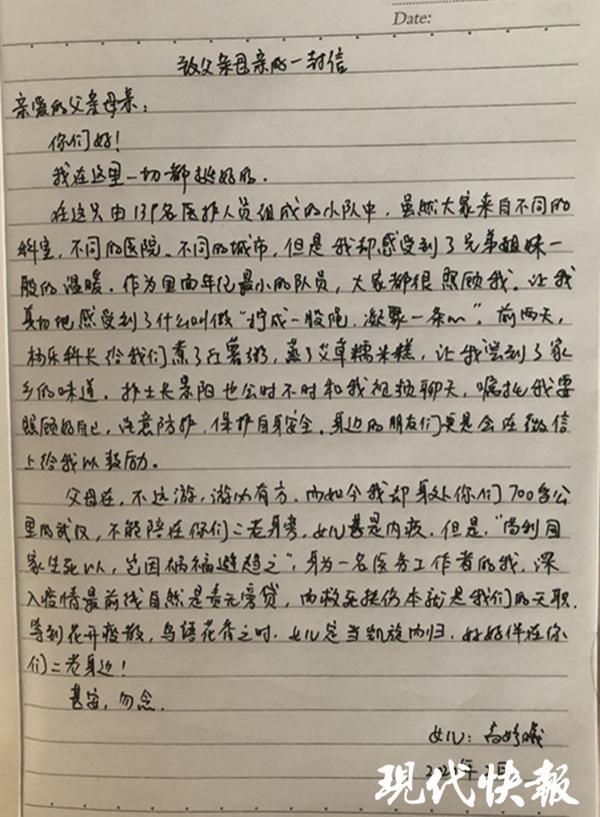 Date:
致父亲母亲的一封信
亲爱的父亲母亲：
你们好！
我在这里一切都挺好的．
在这只由139名医护人员组成的小队中，虽然大家来自不同的
科室，不同的医院、不同的城市，但是我却感受到了兄弟姐妹一
般的温暖．作为里面年纪最小的队员，大家都很照顾我．让我
真切地感受到了什么叫做“拧成一股绳，凝聚一条心”．前两天，
杨乐科长给我们煮了红薯粥，蒸了艾草糯米糕，让我尝到了家
乡的味道．护士长景阳也会时不时和我视频聊天，嘱托我要
照顾好自己，注意防护，保护自身安全．身边的朋友们更是会在微信
上给我以鼓励。
父母在，不远游，游必有方．而如今我却身处你们700多公
里的武汉，不能陪在你们二老身旁，女儿甚是内疚．但是，“苟利国
家生死以，岂因祸福避趋之”，身为一名医务工作者的我，深
入疫情最前线自然是责无旁贷，而救死扶伤本就是我们的天职．
等到花开疫散，鸟语花香之时．女儿定当凯旋而归．好好伴在你
们二老身边！
甚安，勿念．
女儿：高
年 月
现代快报